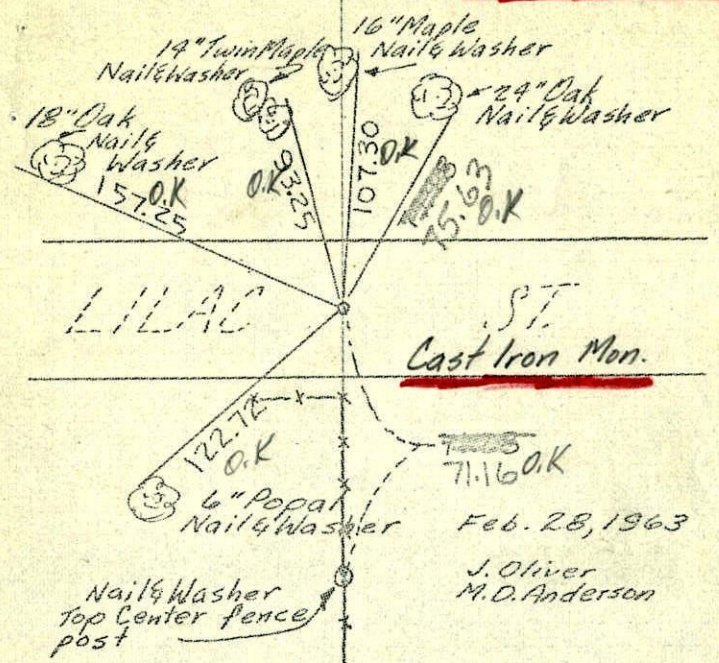 16" Maple
Nail & Washer
14" Twin Maple
Nail & Washer
24" Oak
Nail & Washer
18" Oak
Nail &
Washer
157.25 O.K
93.25 O.K
107.30 O.K
75.63 O.K
LILAC ST.
Cast Iron Mon.
122.72
O.K
71.16 O.K
6" Popar
Nail & Washer
Feb. 28, 1963
J. Oliver
M.D. Anderson
Nail & Washer
Top Center fence
post